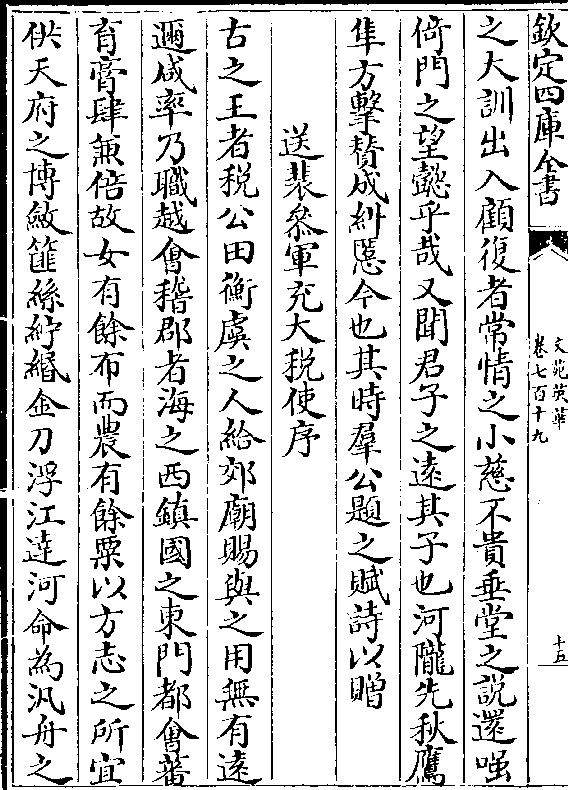 欽定四庫全書
文苑英華
卷七百十九
十五
之大訓出入顧復者常情之小慈不貴垂堂之說還嗤
倚門之望懿乎哉又聞君子之遠其子也河隴先秋鷹
隼方擊贊成糾慝今也其時羣公題之賦詩以贈
送裴參軍充大税使序
古之王者税公田衡虞之人給郊廟賜與之用無有遠
邇咸率乃職越會稽郡者海之西鎮國之東門都會蕃
育膏肆兼倍故女有餘布而農有餘粟以方志之所宜
供天府之博斂篚絲紵緡金刀浮江達河命為汎舟之